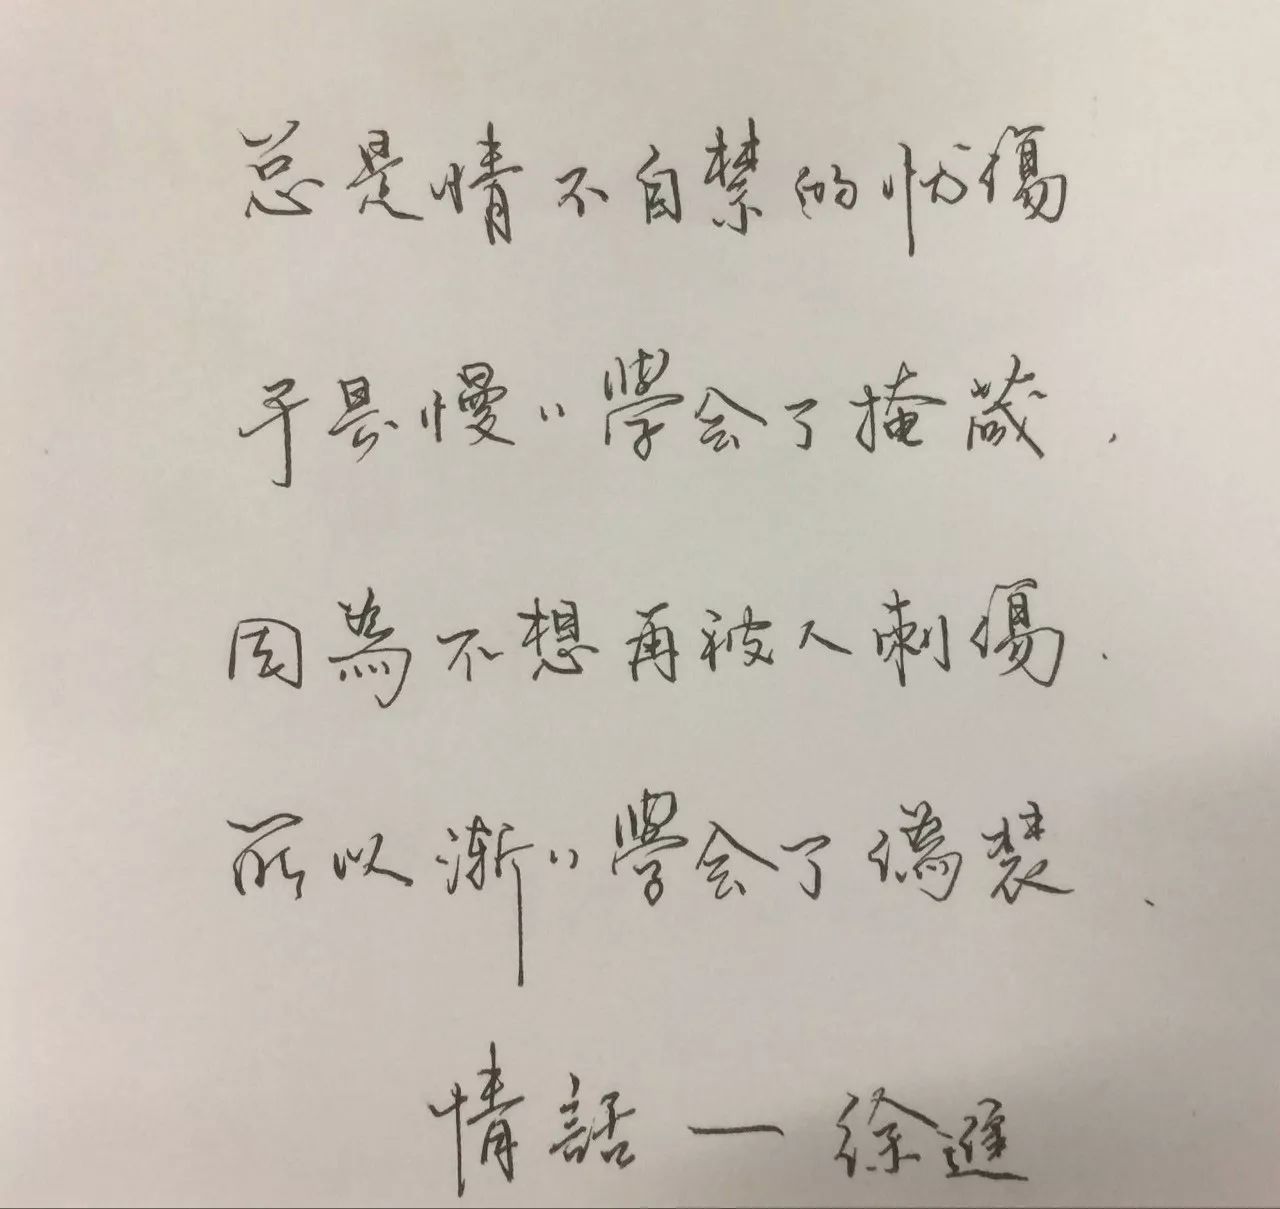 总是情不自禁的忧傷
于是慢〃學会了掩藏,
因為不想再被人刺傷.
所以漸〃學会了偽裝、
情話一徐